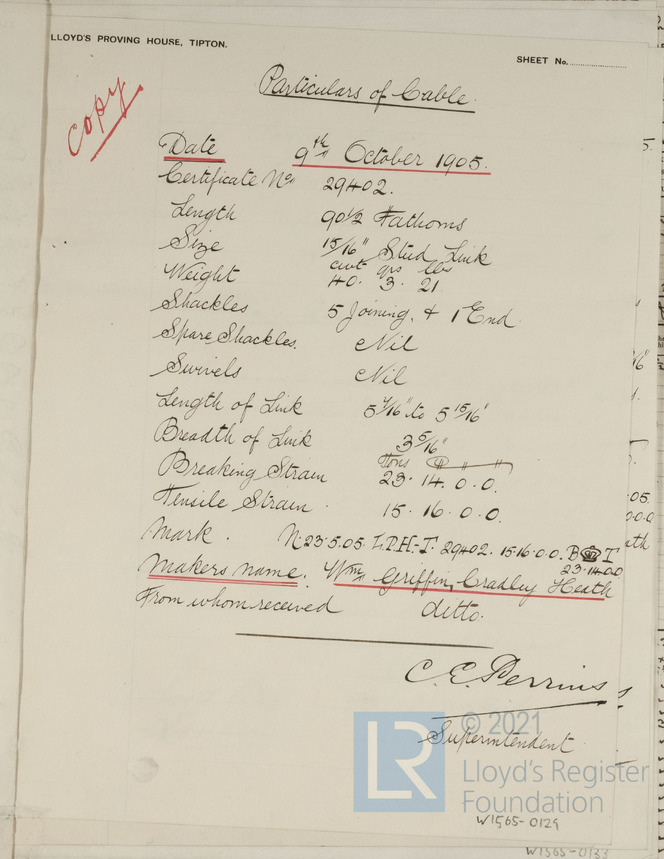 LLOYD'S PROVING HOUSE, TIPTON.
SHEET No.
Copy
Particulars of Cable.
Date 9th October 1905.
Certificate No. 29402.
Length 90 1/2 Fathoms
Size 15/16" Stud Link
cwt qrs lbs
Weight 40. 3. 21
Shackles 5 Joining, & 1 End
Spare Shackles. Nil
Swivels Nil
Length of Link 5 7/16" to 5 15/16"
Breadth of Link 3 5/16"
Tons
Breaking Strain 23. 14. 0. 0.
Tensile Strain. 15. 16. 0. 0.
Mark. N. 23.5.05. L.P.H-T. 29402. 15.16.0.0. B T
23.14.0.0
Makers name. Wm. Griffin, Cradley Heath
From whom received ditto.
C. E. Perrins
Superintendent
© 2021
LR Lloyd's Register
Foundation
W1565-0129
W1565-0133